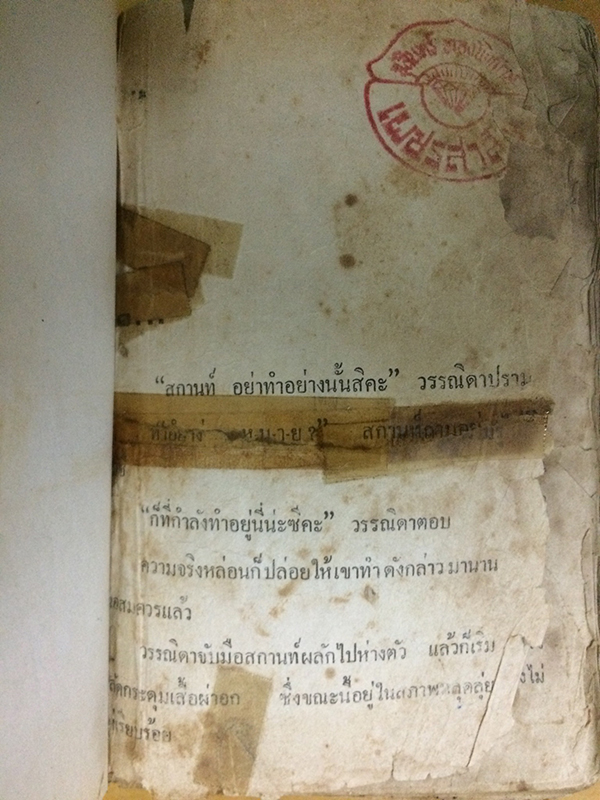 เพชรสา
...
“สกานท์ อย่าทำอย่างนั้นสิคะ” วรรณิดาปราม
ห.ม-า-ย ?” สกานท์ถาม
“ก็ที่กำลังทำอยู่นี่น่ะซีคะ” วรรณิดาตอบ
ความจริงหล่อนก็ปล่อยให้เขาทำ ดังกล่าว มานาน
สมควรแล้ว
วรรณิดาจับมือสกานท์ผลักไปห่างตัว แล้วก็เริ่ม
กระดุมเสื้อผ่าอก ซึ่งขณะนี้อยู่ในสภาพหลุดลุ่ย ไม่
เรียบร้อย